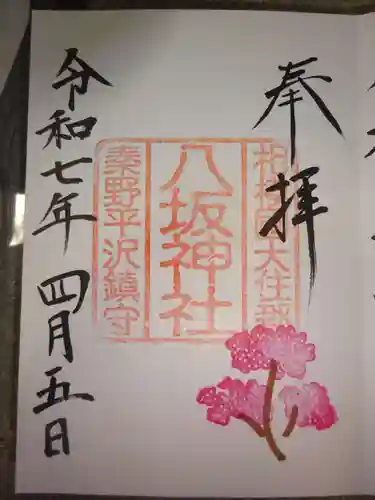 奉拝
相模國大住郡
八坂神社
秦野平沢鎮守
令和七年四月五日